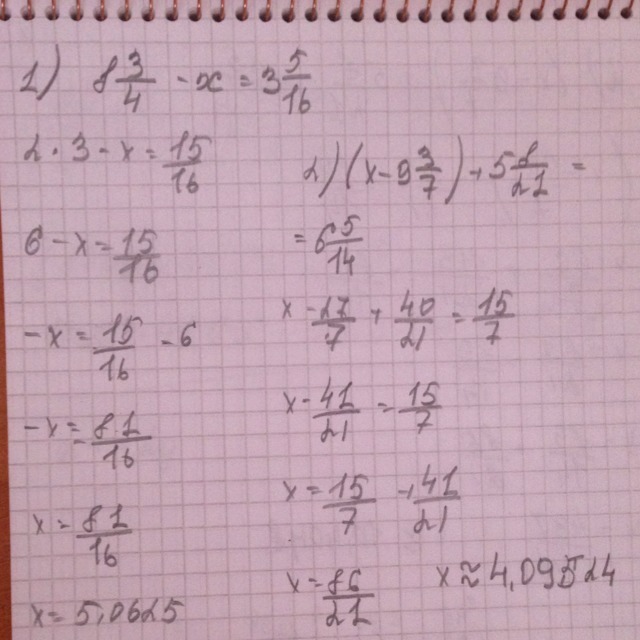 1) 8 3/4 - x = 3 5/16
2 · 3 - x = 15/16
6 - x = 15/16
-x = 15/16 - 6
-x = 81/16
x = 81/16
x = 5,0625
2) (x - 9 3/7) + 5 1/21 =
= 6 5/14
x - 27/7 + 40/21 = 15/7
x - 41/21 = 15/7
x = 15/7 + 41/21
x = 86/21
x ≈ 4,09524